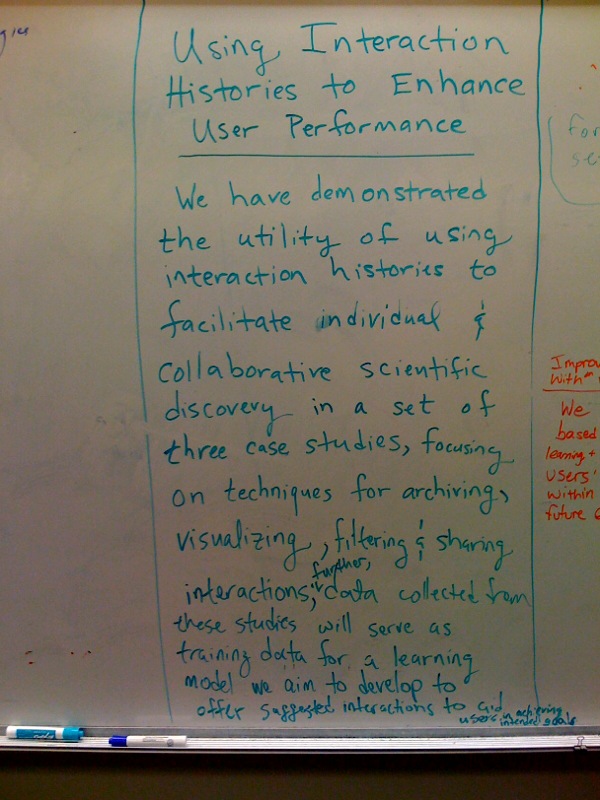 Using Interaction
Histories to Enhance
User Performance
We have demonstrated
the utility of using
interaction histories to
facilitate individual &
collaborative scientific
discovery in a set of
three case studies, focusing
on techniques for archiving,
visualizing, filtering & sharing
further,
interactions; data collected from
these studies will serve as
training data for a learning
model we aim to develop to
offer suggested interactions to aid
users in achieving
intended goals
for
Improv
With
We
based
learning +
users'
within
future